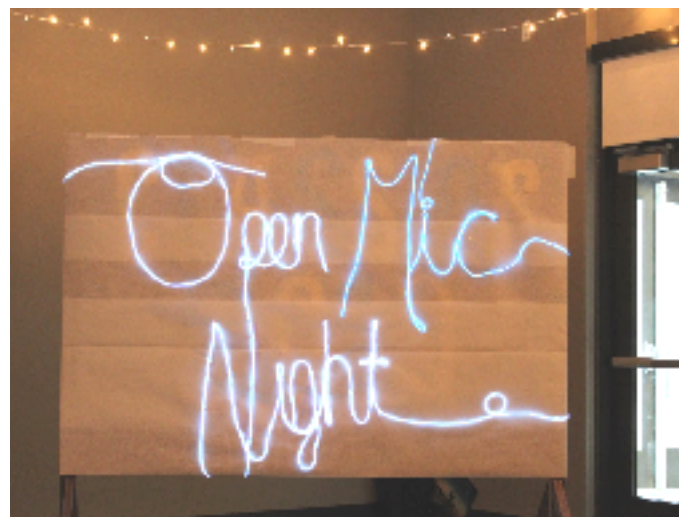 Open Mic
Night